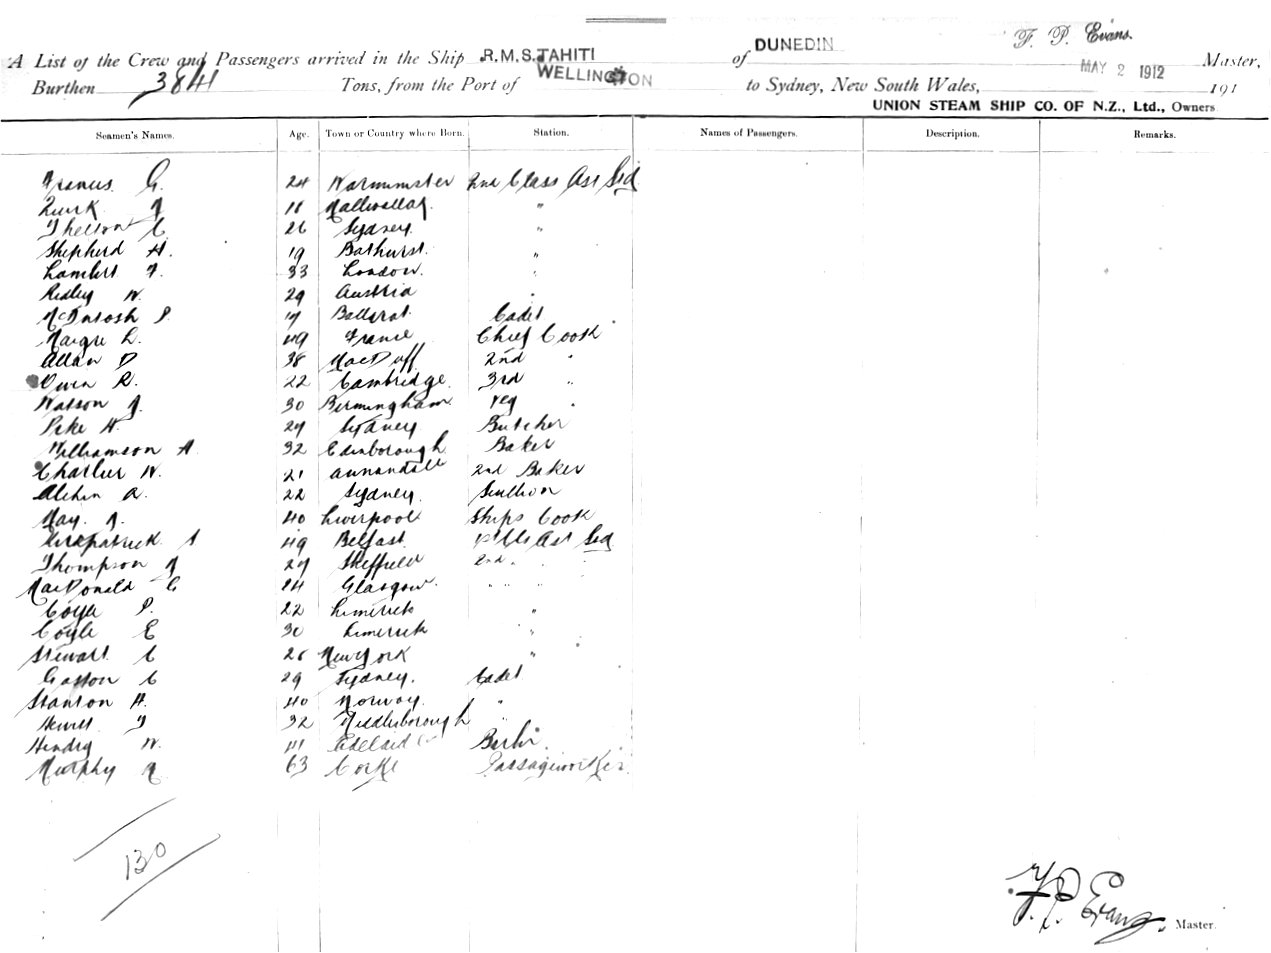 F. P. Evans.
A List of the Crew and Passengers arrived in the Ship R.M.S. TAHITI of DUNEDIN Master,
Burthen 3841 Tons, from the Port of WELLINGTON to Sydney, New South Wales, MAY 2 1912 191
UNION STEAM SHIP CO. OF N.Z., Ltd., Owners
Seamen's Names. Age. Town or Country where Born. Station. Names of Passengers. Description. Remarks.
Francis G. 24 Warminster 2nd Class Ast Std
Quirk 18 "
C 26 Sydney "
Shepherd H. 19 Bathurst "
Lambert F. 33 London "
Ridley W. 29 Austria "
McIntosh P. 17 Ballarat Cadet
Maigre L. 49 France Chief Cook
Allan D 38 MacDuff 2nd "
Owen R. 22 Cambridge 3rd "
Watson J. 30 Birmingham Veg "
Pike H. 27 Sydney Butcher
Williamson A 32 Edinborough Baker
Charlier W. 21 Annandale 2nd Baker
A. 22 Sydney. Scullion
May. J. 40 Liverpool Ships Cook
Kirkpatrick S 49 Belfast 1st Cls Ast Std
Thompson J 27 Sheffield 2nd " "
MacDonald C 24 Glasgow " " "
Coyle P. 22 Limerick "
Coyle E 30 Limerick "
Stewart C 26 New York "
Gasson C 29 Sydney. Cadet
Stanton H. 40 Norway. "
Hewitt T 32 Middlesborough "
Hendry W. 41 Adelaide
Murphy 63 Corke Passageworker
130
F. P. Evans. Master.